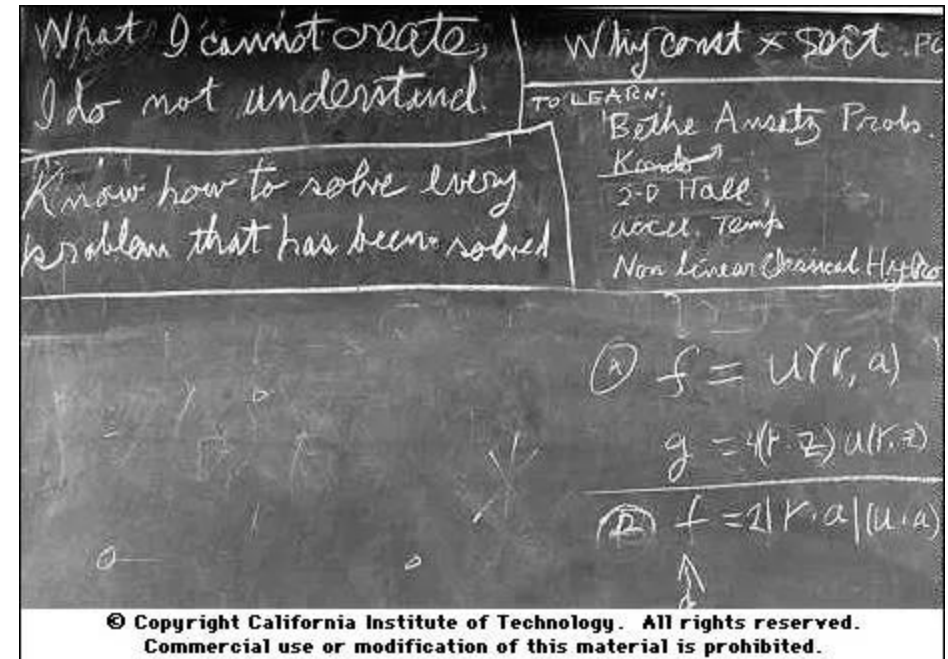 What I cannot create,
I do not understand.
Know how to solve every
problem that has been solved
Why const × sort . PO
TO LEARN:
Bethe Ansatz Probs.
Kondo
2-D Hall
accel. Temp
Non linear Classical Hydro
Ⓐ f = u(r, a)
g = 4(r·z) u(r,z)
f = 2|r·a|(u·a)
© Copyright California Institute of Technology. All rights reserved.
Commercial use or modification of this material is prohibited.